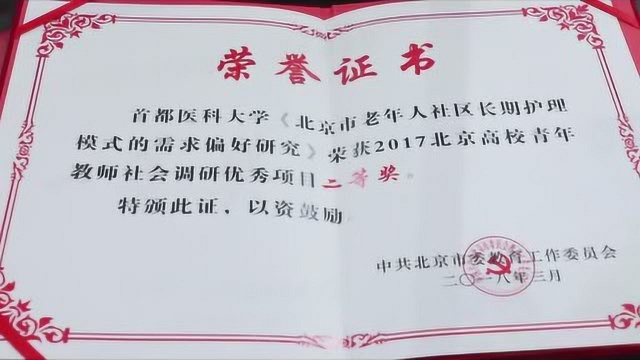 荣誉证书
首都医科大学《北京市老年人社区长期护理
模式的需求偏好研究》荣获2017北京高校青年
教师社会调研优秀项目二等奖。
特颁此证，以资鼓励
中共北京市委教育工作委员会
二〇一八年三月